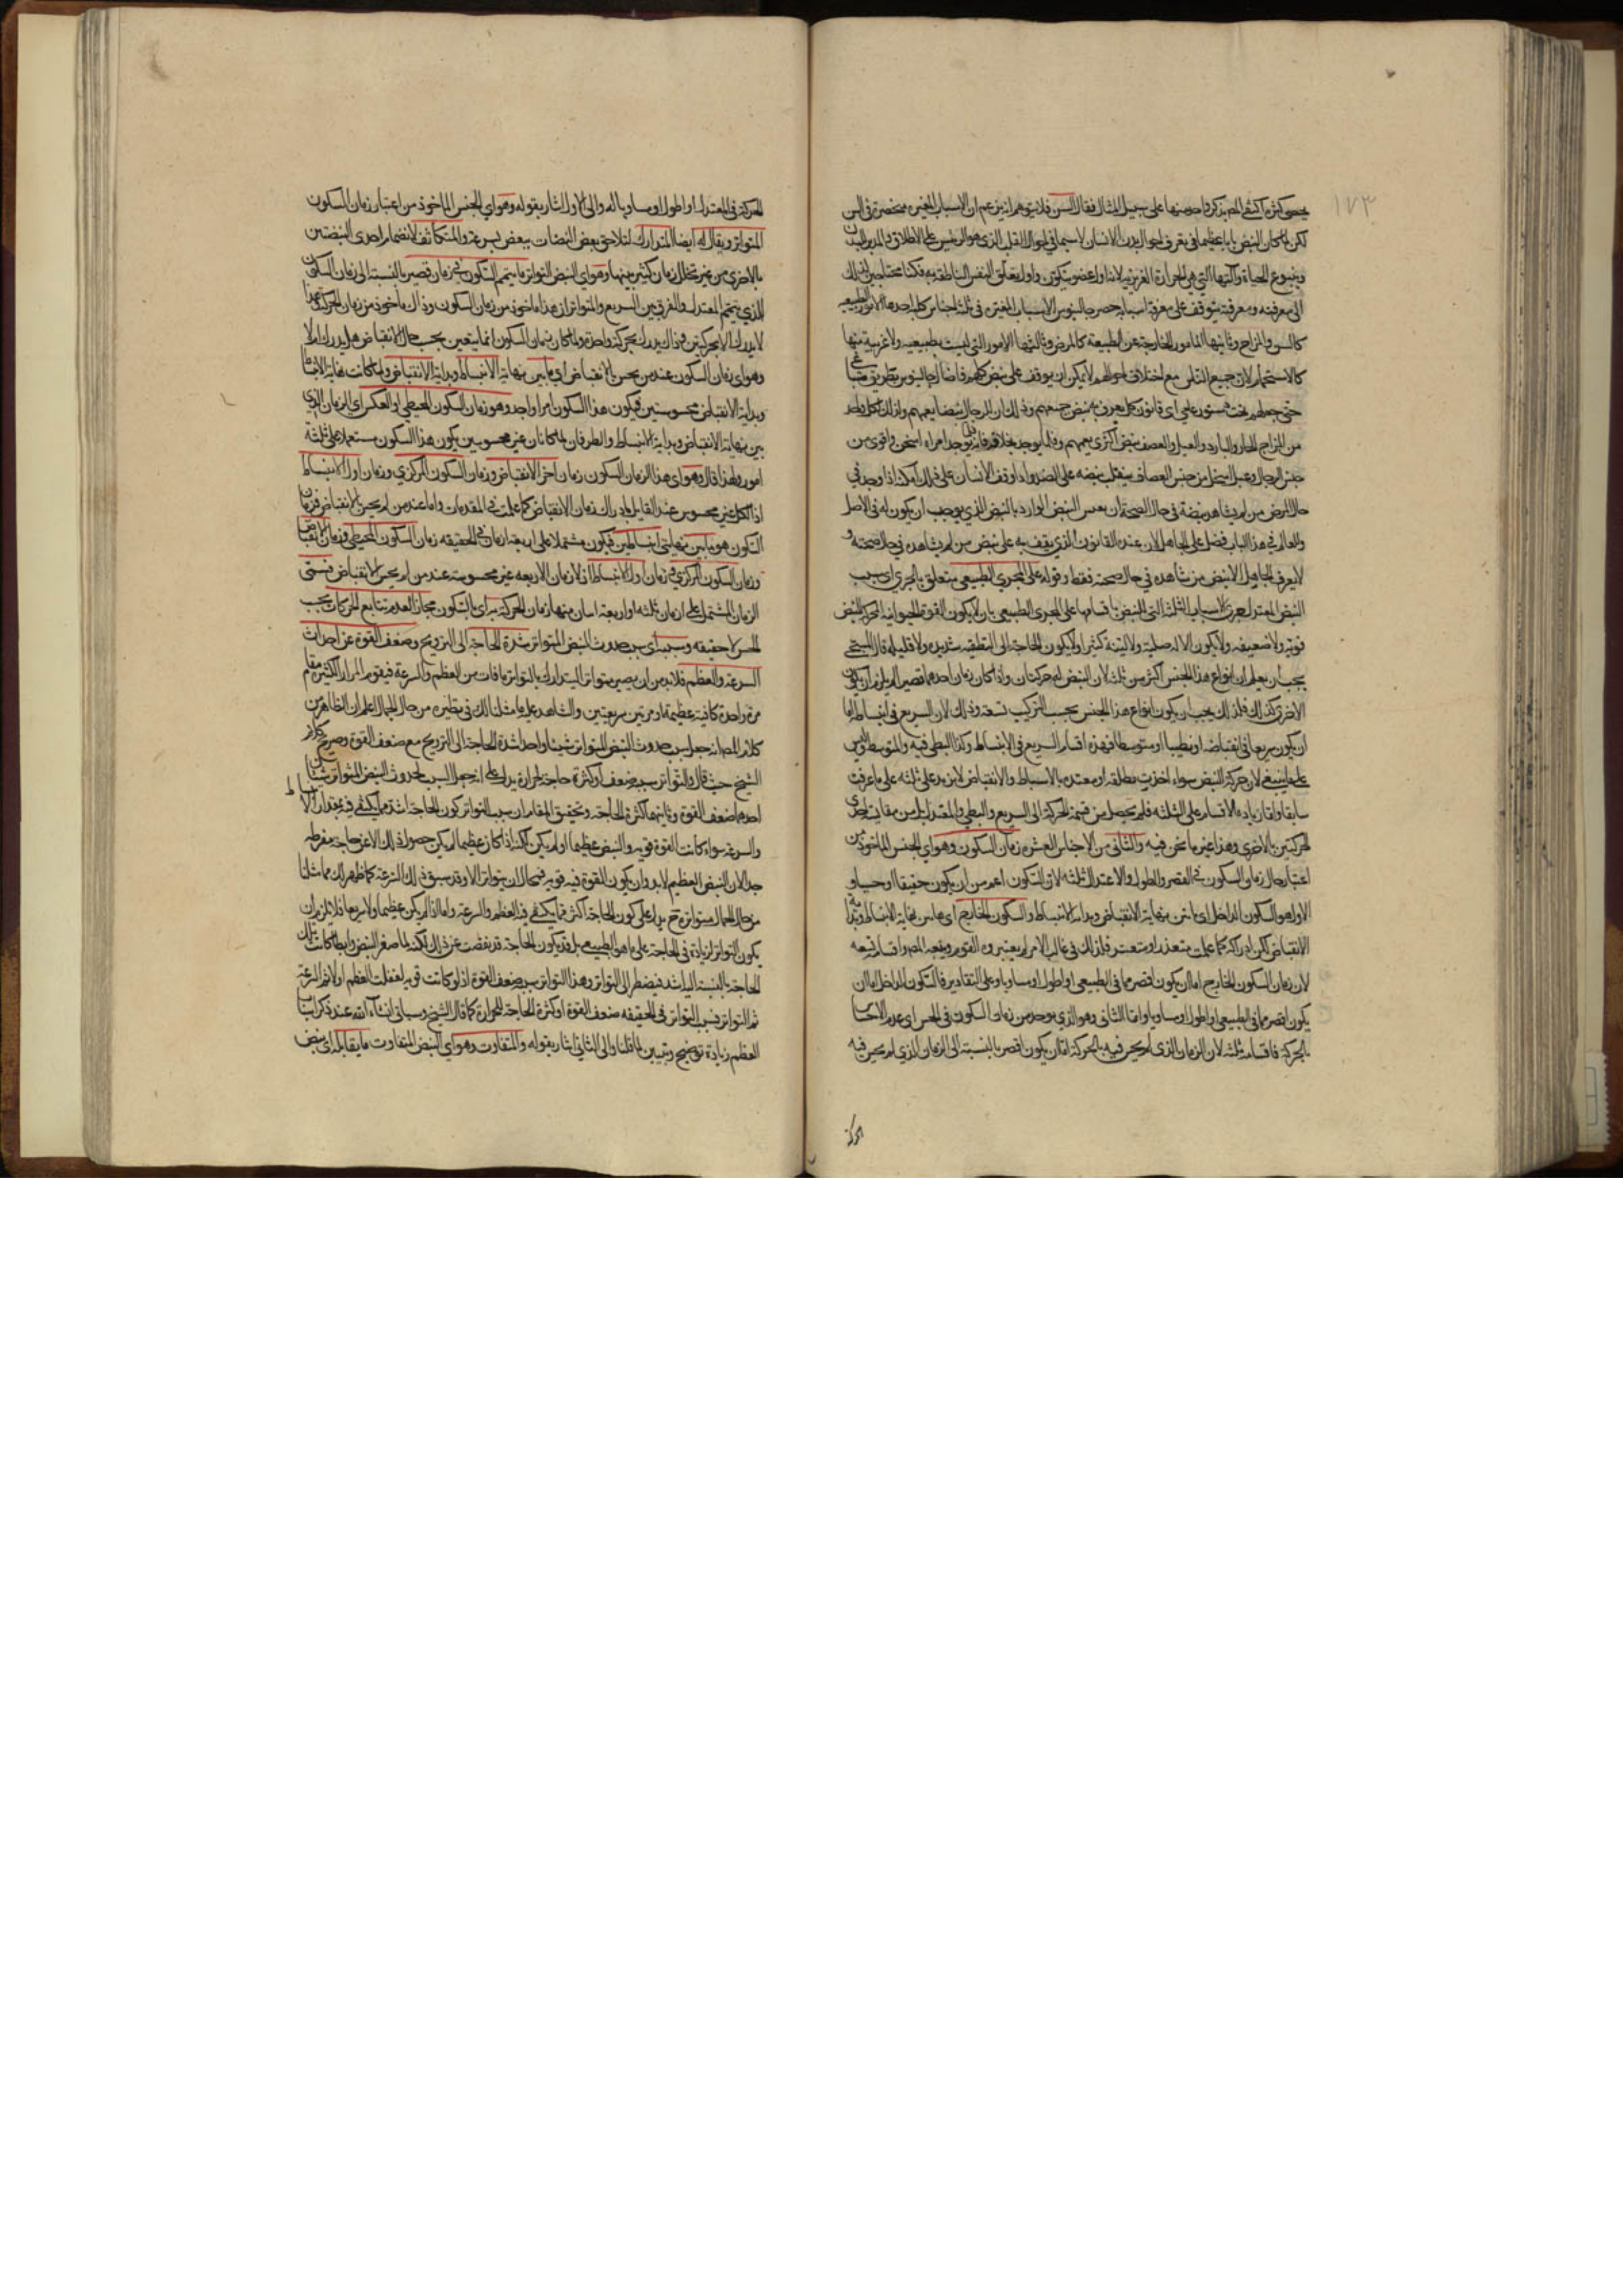 ١٧٣
لكن لما كان النبض بابا عظيما في تعرف احوال بدن الانسان لا سيما في احوال القلب الذي هو الرئيس على الاطلاق والمدبر للبدن
وينبوع الحياة وآلتها التي هي الحرارة الغريزية لانه اول عضو يتكون واول متعلق النفس الناطقة به فكنا محتاجين لذلك
الى معرفته ومعرفته يتوقف على معرفة اسبابه حصر جالينوس الاسباب المغيرة في ثلثة اجناس كلية احدها الامور الطبيعية
كالسن والمزاج وثانيها الامور الخارجة عن الطبيعة كالمرض وثالثها الامور التي ليست بطبيعية ولا غريبة منها
كالاستحمام لان جميع الناس مع اختلاف احوالهم لا يمكن ان يوقف على نبض كلهم
حتى جعلهم تحت دستور علمي اي قانون كلي يعرف به نبض جميعهم وذلك ان للرجال نبضا يعمهم وكذلك لكل واحد
من المزاج الحار والبارد والعبل والقصف نبض اكثري يعمهم وقلما يوجد بخلافه فانه قل يوجد امراة اسخن واقوى من
حال المرض من لم يشاهد نبضه في حال الصحة ان يقيس النبض الوارد بالنبض الذي يوجب ان يكون له في الاصل
وللعالم في هذا الباب فضل على الجاهل لان عنده القانون الذي يقف به على نبض من لم يشاهده في حال صحته و
لا يعرف الجاهل الا نبض من شاهده في حال صحته فقط وقوله على المجرى الطبيعي متعلق بالجري اي سبب
النبض المعتدل جري الاسباب الثلثة التي للنبض باقسامها على المجرى الطبيعي بان لا يكون القوة الحيوانية المحركة للنبض
قوية ولا ضعيفة ولا يكون الآلة صلبة ولا لينة كثيرا ولا يكون الحاجة الى التطفية شديدة ولا قليلة قال المسيحي
يجب ان يعلم ان انواع هذا الجنس اكثر من ثلثة لان النبض له حركتان واذا كان زمان احدهما قصيرا لم يلزم ان يكون
الاخرى كذلك فلذلك يجب ان يكون انواع هذا الجنس بحسب التركيب تسعة وذلك لان السريع في انبساطه اما
ان يكون سريعا في انقباضه او بطيئا او متوسطا فهذه اقسام السريع في الانبساط وكذا البطيء فيه والمتوسط وليس
على ما ينبغي لان حركة النبض سواء اخذت مطلقة او مقيدة بالانبساط والانقباض لا يزيد على ثلثة على ما عرفت
سابقا واما زيادة الاقسام على الثلثة فلم يحصل من قسمة الحركة الى السريع والبطيء والمعتدل بل من مقايسة احدى
الحركتين بالاخرى وهذا غير ما نحن فيه والثاني من الاجناس العشرة زمان السكون وهو اي الجنس الماخوذ من
اعتبار حال زمان السكون في القصر والطول والاعتدال ثلثة لان السكون اعم من ان يكون حقيقيا او حسيا و
الاول هو السكون الداخل اي ما بين نهاية الانقباض وبداية الانبساط والسكون الخارج اي ما بين نهاية الانبساط وبداية
الانقباض لكن ادراكه كما علمت متعذر او متعسر فلذلك في غالب الامر لم يعتبره القوم وتبعهم المص واقسامه تسعة
لان زمان السكون الخارج اما ان يكون اقصر مما في الطبيعي او اطول او مساويا وعلى التقادير فالسكون الداخل اما ان
يكون اقصر مما في الطبيعي او اطول او مساويا واما الثاني وهو الذي يوجد من زمان السكون في الحس اي عدم الاحساس
بالحركة فاقسامه ثلثة لان الزمان الذي لم يحس فيه بالحركة اما ان يكون اقصر بالنسبة الى الزمان الذي لم يحس فيه
الحركة
الحركة في المعتدل او اطول او مساويا له والى الاول اشار بقوله وهو اي الجنس الماخوذ من اعتبار زمان السكون
المتواتر ويقال له ايضا المتدارك لتلاحق بعض النبضات ببعض بسرعة والمتكاثف لانضمام احدى النبضتين
بالاخرى من غير تخلل زمان كثير بينهما وهو اي النبض المتواتر ما يتم السكون في زمان قصير بالنسبة الى زمان السكون
الذي يتم المعتدل والفرق بين السريع والمتواتر ان هذا ماخوذ من زمان السكون وذاك ماخوذ من زمان الحركة وهذا
لا يدرك الا بحركتين وذاك يدرك بحركة واحدة ولما كان زمان السكون انما يتعين بحسب حال الانقباض هل يدرك ام لا
وهو اي زمان السكون عند من يحس بالانقباض اي ما بين نهاية الانبساط وبداية الانقباض ولما كانت نهاية الانبساط
وبداية الانقباض محسوستين فيكون هذا السكون امرا واحدا وهو زمان السكون المحيطي او العكس اي الزمان الذي
بين نهاية الانقباض وبداية الانبساط والطرفان لما كانا غير محسوسين يكون هذا السكون مشتملا على ثلثة
امور ولهذا قال وهو اي هذا الزمان السكون زمان اخر الانقباض وزمان السكون المركزي وزمان اول الانبساط
اذ الكل غير محسوس عند القايل بادراك زمان الانقباض كما علمت في المقدمات واما عند من لم يحس بالانقباض فزمان
السكون هو ما بين نهايتي انبساطين فيكون مشتملا على اربعة ازمان في الحقيقة زمان السكون المحيطي وزمان الانقباض
وزمان السكون المركزي وزمان اول الانبساط اذ الازمان الاربعة غير محسوسة عند من لم يحس الانقباض فسمى
الزمان المشتمل على ازمان ثلثة او اربعة اسان منها زمان الحركة بزمان السكون مجازا لعدم تتابع الحركات بحسب
الحس لا حقيقة وسببه اي سبب حدوث النبض المتواتر شدة الحاجة الى الترويح وضعف القوة عن احداث
السرعة والعظم فلابد من ان يصير متواترا ليتدارك بالتواتر ما فات من العظم والسرعة فيقوم المرار الكثيرة مقام
مرة واحدة كافية عظيمة او مرتين سريعتين والشاهد عليه ما مثلنا لك في نظيره من حال الحمال اعلم ان الظاهر من
كلام المص انه جعل سبب حدوث النبض المتواتر شيئا واحدا شدة الحاجة الى الترويح مع ضعف القوة وصريح كلام
الشيخ حيث قال والتواتر سببه ضعف او كثرة حاجة لحرارة يدل على انه جعل السبب لحدوث النبض المتواتر شيئين
احدهما ضعف القوة وثانيهما كثرة الحاجة وتحقيق المقام ان سبب التواتر كون الحاجة اشد مما يكفي فيه مقدار الانبساط
والسرعة سواء كانت القوة قوية والنبض عظيما او لم يكن لكنه اذا كان عظيما لم يكن حصول ذلك الا عن حاجة مفرطة
جدا لان النبض العظيم لابد وان يكون القوة فيه قوية فمحال ان يتواتر الا وقد سبق ذلك السرعة كما ظهر لك مما مثلنا
من حال الحمال متواتره ح يدل على كون الحاجة اكثر مما يكفي فيه العظم والسرعة واما اذا لم يكن عظيما ولا سريعا فلا يلزم ان
يكون التواتر لزيادة في الحاجة على ما هو الطبيعي بل قد يكون الحاجة قد نقصت عن ذلك لكنه لما صغر النبض وابطا كانت تلك
الحاجة بالنسبة اليه اشد فيضطر الى التواتر وهذا التواتر سببه ضعف القوة اذ لو كانت قوية لفعلت العظم اولا ثم السرعة
ثم التواتر فسبب التواتر في الحقيقة ضعف القوة او كثرة الحاجة للحرارة كما قال الشيخ وسياتي انشاء الله عند ذكر اسباب
العظم زيادة توضيح وتبيين لما قلنا والى الثاني اشار بقوله والمتفاوت وهو اي النبض المتفاوت ما يقابله اي نبض